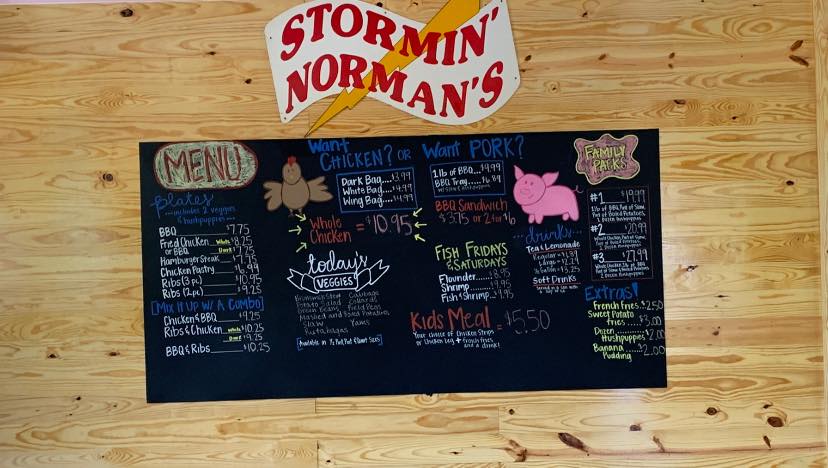 STORMIN'
NORMAN'S
MENU
Plates
...includes 2 veggies
& hushpuppies...
BBQ $7.75
Fried Chicken White $8.25
or BBQ Dark $
Hamburger Steak $7.75
Chicken Pastry $6.99
Ribs (3 pc) $10.95
Ribs (2 pc) $9.25
[Mix It Up W/ A Combo]
Chicken & BBQ $9.25
Ribs & Chicken White $10.25
Dark $9.25
BBQ & Ribs $10.25
Want
CHICKEN? OR
Dark Bag.....$3.99
White Bag....$4.99
Wing Bag....$4.99
Whole
Chicken = $10.95
today's
VEGGIES
Brunswick Stew Cabbage
Potato Salad Collards
Green Beans Field Peas
Mashed and Boiled Potatoes
Slaw Yams
Rutabagas
[Available in ½ Pint, Pint & Quart Sizes]
Want PORK?
1 lb of BBQ....$9.99
BBQ Tray.....$6.89
w/ slaw & hushpuppies
BBQ Sandwich
$3.75 or 2 for $6
FISH FRIDAYS
& SATURDAYS
Flounder......$8.95
Shrimp........$9.95
Fish & Shrimp...$9.95
Kids Meal = $5.50
Your choice of Chicken Strips
or Chicken Leg + french fries
and a drink!
...drinks...
Tea & Lemonade
Regular - $1.89
Large - $2.19
½ Gallon - $3.25
Soft Drinks
FAMILY
PACKS
#1 $19.99
1 lb of BBQ, Pint of Slaw,
Pint of Boiled Potatoes,
2 Dozen Hushpuppies
#2 $20.99
Whole Chicken, Pint of Slaw,
Pint of Boiled Potatoes,
2 Dozen Hushpuppies
#3 $27.99
Whole Chicken, 1 lb of BBQ,
Pint of Slaw & Boiled Potatoes
2 Dozen Hushpuppies
Extras!
French fries..$2.50
Sweet Potato
fries....$3.00
Dozen
Hushpuppies $2.00
Banana
Pudding $2.00